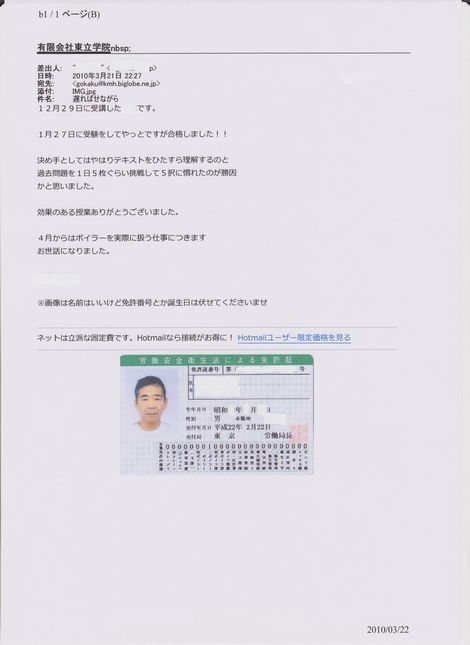 b1 / 1 ページ(B)
有限会社東立学院nbsp;
差出人: " " < p>
日時: 2010年3月21日 22:27
宛先: <gokaku@kmh.biglobe.ne.jp>
添付: IMG.jpg
件名: 遅ればせながら
１２月２９日に受講した です。
１月２７日に受験をしてやっとですが合格しました！！
決め手としてはやはりテキストをひたすら理解するのと
過去問題を１日５枚ぐらい挑戦して５択に慣れたのが勝因
かと思いました。
効果のある授業ありがとうございました。
４月からはボイラーを実際に扱う仕事につきます
お世話になりました。
※画像は名前はいいけど免許番号とか誕生日は伏せてくださいませ
ネットは立派な固定費です。Hotmailなら接続がお得に！ Hotmailユーザー限定価格を見る
労働安全衛生法による免許証
免許証番号 第 号
氏名
生年月日 昭和 年 月 日
性別 男 本籍地
交付年月日 平成22年 2月22日
交付局 東 京 労働局長
2010/03/22